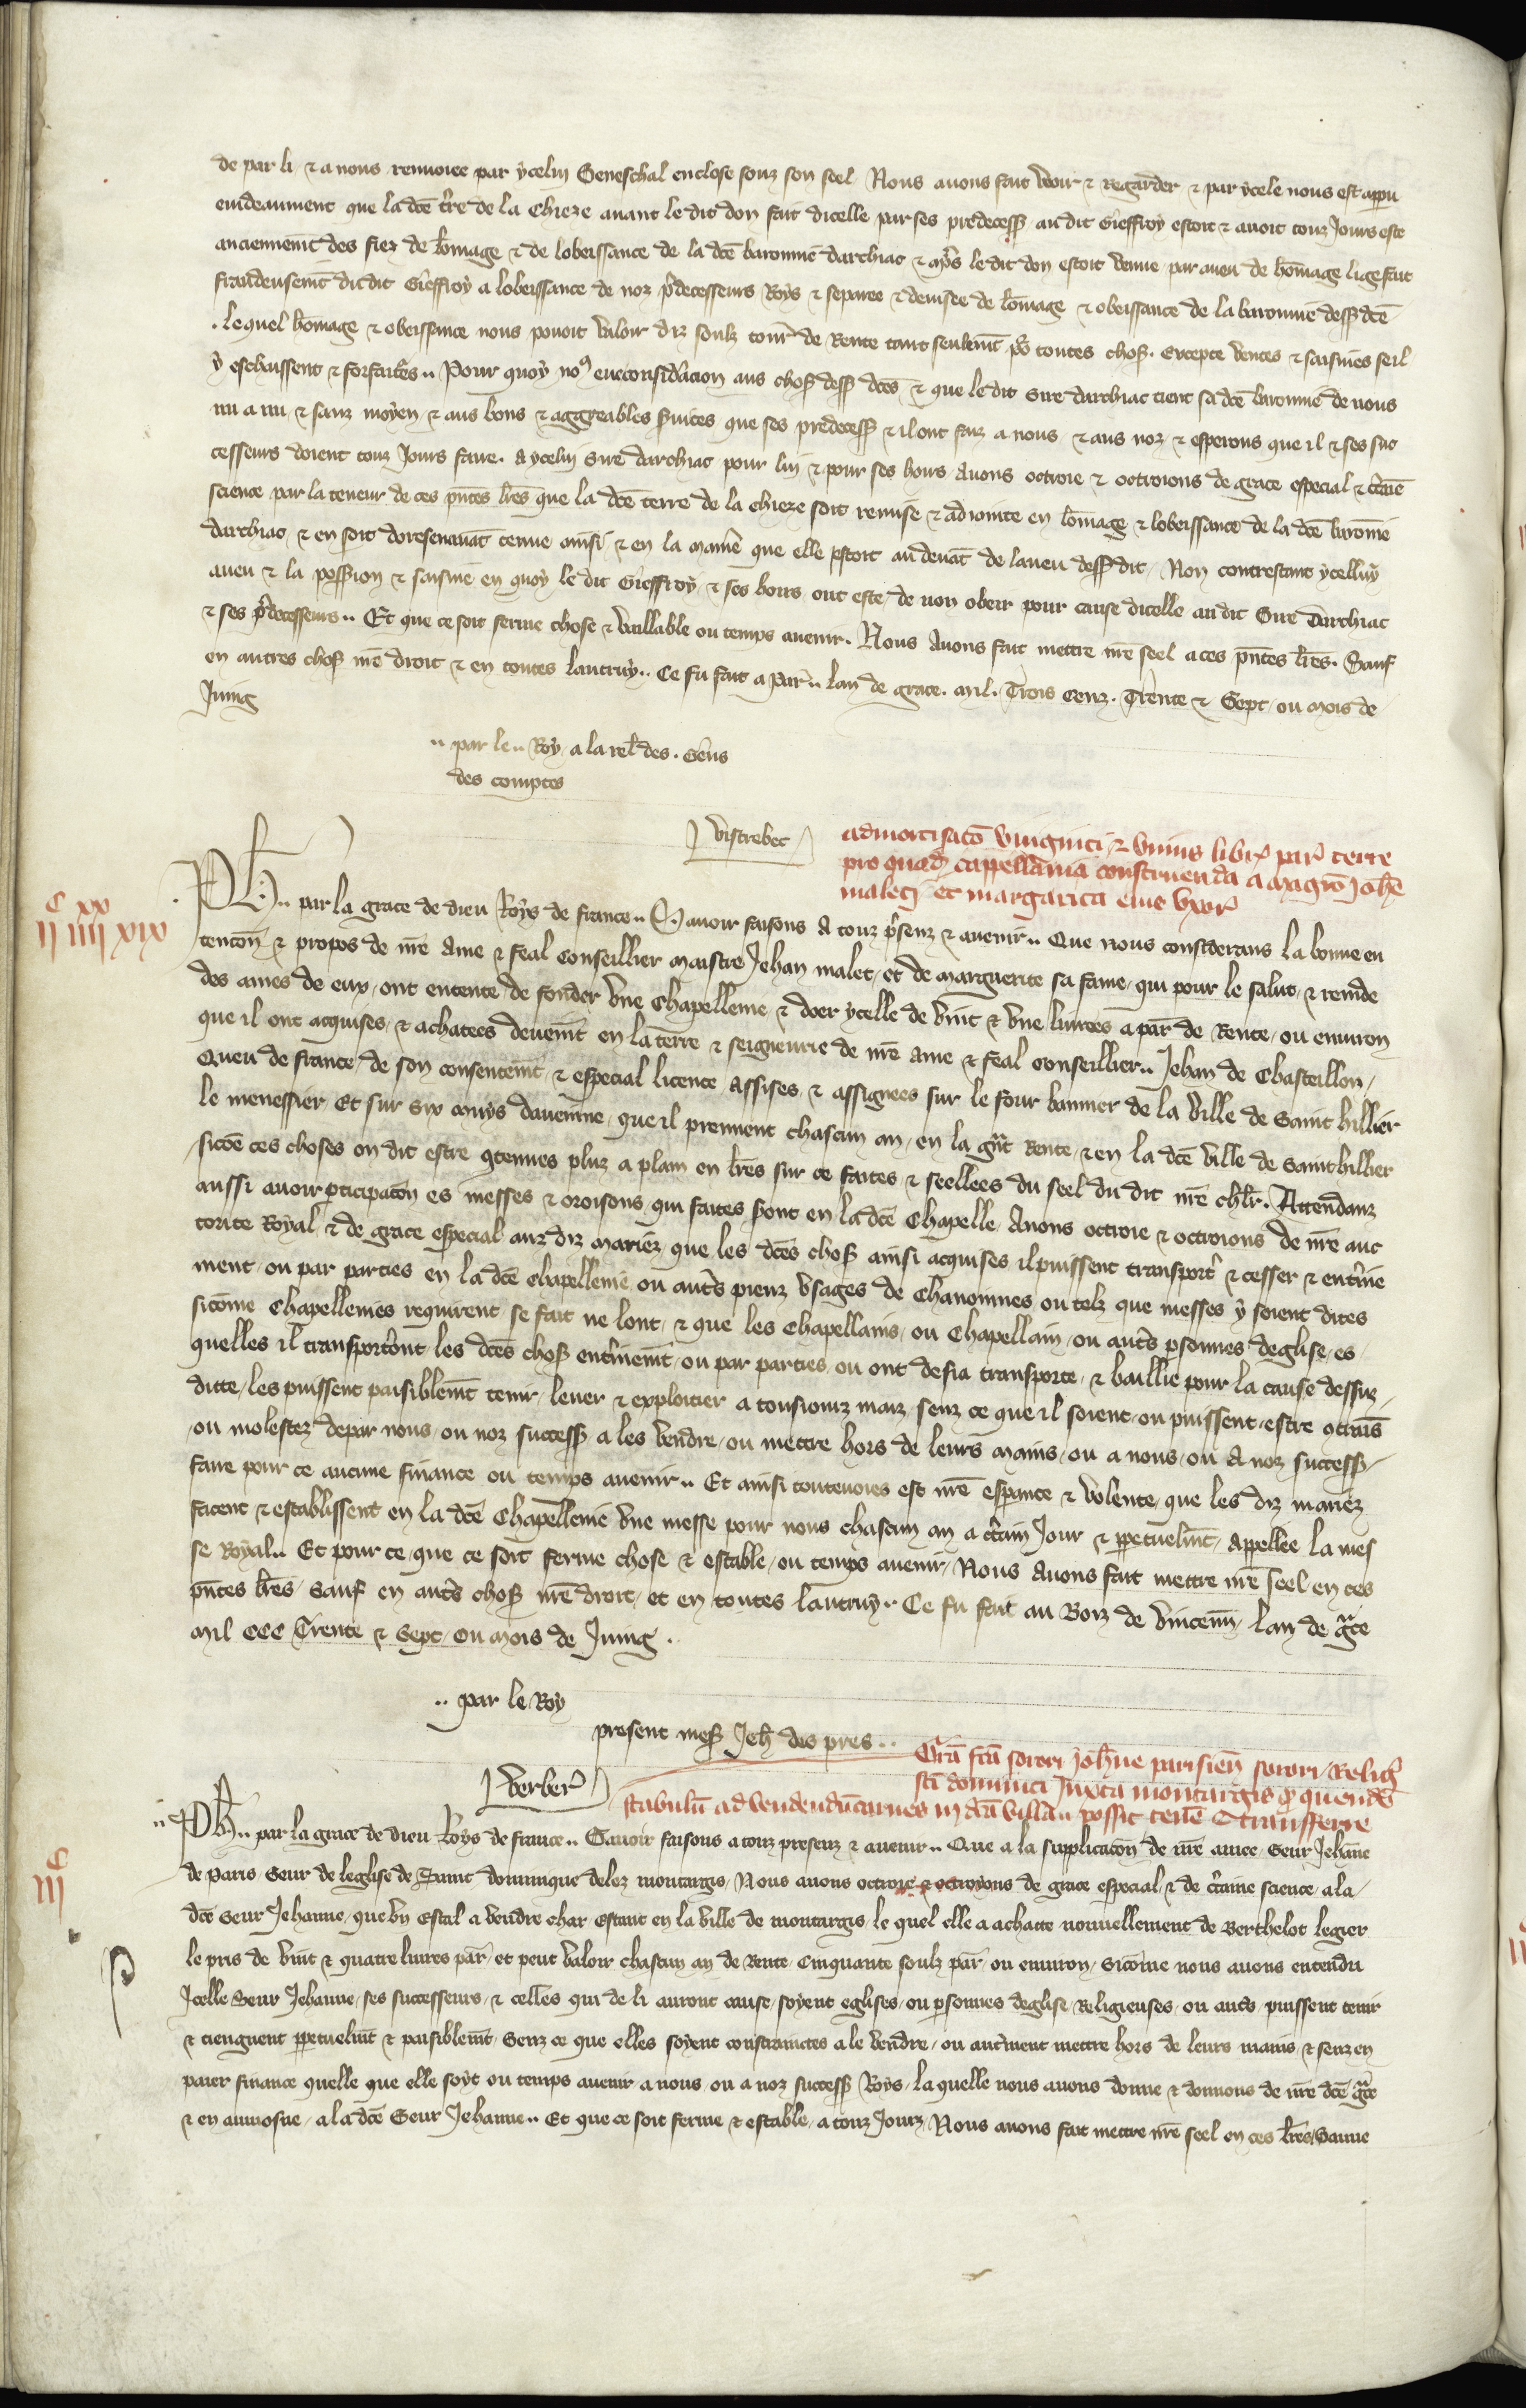 de par li & a nous renvoiee par ycelui Seneschal enclose souz son seel Nous avons fait veoir & regarder & par ycele nous est apparu
evideaument que la dce t're de la Chieze avant le dit don fait dicelle par ses predecess' au dit Gieffroy estoit & avoit touz Jours este
anciennemt des fiez de homage & de lobeissance de la dce baronnie darchiac & aprs le dit don estoit venue par aveu de homage lige fait
fraudeusemt du dit Gieffroy a lobeissance de noz p'decesseurs Roys & separee & devisee de homage & obeissance de la baronnie dess' dce
. lequel homage & obeissance nous povoit valoir diz soulz tour' de Rente tant seulemt por toutes chos'. Excepte ventes & saisines seil
y escheussent & forfaites .. Pour quoy no9 eue consid'acion aus chos' dess' dces & que le dit Sire darchiac tient sa dce baronnie de nous
nu a nu & sanz moyen & aus bons & aggreables s'vices que ses predecess' & il ont faiz a nous & aus noz & esperons que il & ses suc
cesseurs doient touz Jours faire. A ycelui Sire darchiac pour lui & pour ses hoirs avons octroie & octroions de grace especial & c'taine
science par la teneur de ces pntes lres que la dce terre de la chieze soit remise & adiointe en homage & lobeissance de la dce baronnie
darchiac & en soit doresenavat tenue ainsi & en la maniere que elle estoit au devat de laveu dess' dit Non contrestant ycelluy
aveu & la possession & saisine en quoy le dit Gieffroy & ses hoirs ont este de non obeir pour cause dicelle au dit Sire Darchiac
& ses p'decesseurs .. Et que ce soit ferme chose & vaillable ou temps avenir. Nous Avons fait mettre nre seel a ces pntes lres. Sauf
en autres chos' nre droit & en toutes lautruy .. Ce fu fait a Par' .. lan de grace. mil. Trois Cenz. Trente & Sept ou mois de
Juing
.. par le .. Roy a la rel' des . Gens
des comptes
Vistrebec
admortisaco viginti & unius libr' par' terre
pro quad' cappellania construenda a magro Johe
maleti et margarita eius uxor'
IIc IIIIxx XIX
Ph .. par la grace de dieu Roys de france .. Savoir faisons A touz p'senz & avenir .. Que nous considerans la bonne en
tencon & propos de nre Ame & feal Conseillier maistre Jehan malet et de marguerite sa fame qui pour le salut & remde
des ames de eux ont entente de fonder une Chapellenie & doer ycelle de vint & une livrees a par' de Rente ou environ
que il ont acquises & achatees devenmt en la terre & seigneurie de nre Ame & feal Conseillier .. Jehan de Chasteillon
Queu de france de son consentemt & especial licence Assises & assignees sur le four bannier de la ville de Saint hillier
le menessier Et sur Six muys davenne que il prennent chascun an en la gnt Rente & en la dce ville de Saint hillier
sicoe ces choses on dit estre 9tenues pluz a plain en lres sur ce faites & seellees du seel du dit nre chlr. Attendanz
aussi avoir pticipacon es messes & oroisons qui faites s'ont en la dce Chapelle Avons octroie & octroions de nre auc
torite Royal & de grace especial aux diz mariez que les dces chos' ainsi acquises il puissent transport' & cesser & ent'ine
ment ou par parties en la dce chapellenie ou aut's pieux Usages de Chanoinnes ou telz que messes y soient dites
sicome Chapellenies requirent se fait ne lont & que les Chapellains ou Chapellain ou aut's psonnes deglise es
quelles il transport'ont les dces chos' ent'inemt ou par parties ou ont desia transporte & baillie pour la cause dessuz
ditte les puissent paisiblemt tenir lever & exploitier a tousiourz maiz senz ce que il soient ou puissent estre 9trains
ou molestez depar nous ou noz success' a les vendre ou mettre hors de leurs mains ou a nous ou a noz success'
faire pour ce aucune finance ou temps avenir .. Et ainsi toutevoies est nre esp'ance & volente que les diz mariez
facent & establissent en la dce Chapellenie une messe pour nous chascun an a c'tain Jour & ppetuelmt Appellee la mes
se Royal .. Et pour ce que ce soit ferme chose & estable ou temps avenir Nous Avons fait mettre nre seel en ces
pntes lres Sauf en aut's chos' nre droit et en toutes lautruy. Ce fu fait au Boiz de vincenn' lan de gce
mil CCC Trente & Sept ou mois de Juing .
.. par le Roy
present mess' Jeh' des pres ..
Verber'
Gra fca sorori Johne parisien' sorori Religi'
sci dominici Juxta montargis q' quendo
stabulu ad vendendu carnes in dca villa .. possit tene & transferre
IIIc
Ph .. par la grace de dieu Roys de france .. Savoir faisons a touz presenz & avenir .. Que a la supplicacon de nre amee Seur Jehanne
de Paris Seur de leglise de Saint dominique delez montargis Nous avons octroie & octroyons de grace especial & de c'taine science a la
dce Seur Jehanne que un Estal a vendre char estant en la ville de montargis le quel elle a achatte nouvellement de Berthelot legier
le pris de vint & quatre livres par' et peut valoir chascun an de Rente Cinquante soulz par' ou environ Sicome nous avons entendu
Icelle Seur Jehanne ses successeurs & celles qui de li auront cause soyent eglises ou personnes deglise Religieuses ou aut's puissent tenir
& tiengnent ppetuelmt & paisiblemt Senz ce que elles soyent constraintes a le vendre ou aut'ment mettre hors de leurs mains & senz en
paier finance quelle que elle soyt ou temps avenir a nous ou a noz success' Roys la quelle nous avons donne & donnons de nre dce gce
& en aumosne a la dce Seur Jehanne .. Et que ce soit ferme & estable a touz Jourz Nous avons fait mettre nre seel en ces lres Sauve